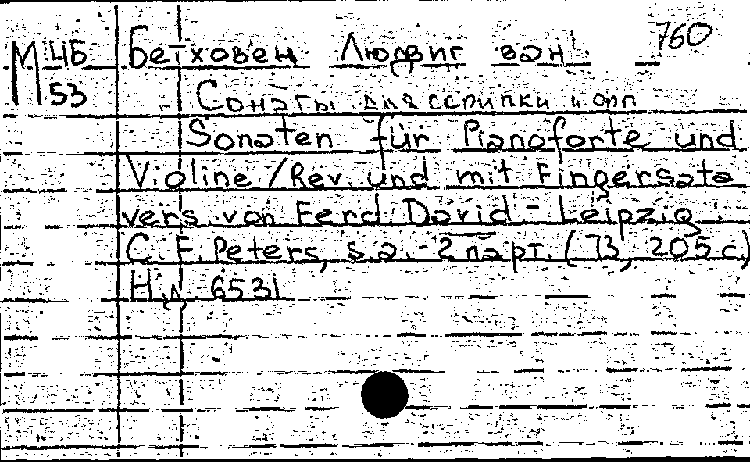 760
М ЧБ Бетховен Людвиг ван
53 Сонаты для скрипки и фп
Sonaten für Pianoforte und
Violine / Rev. und mit Fingersatz
vers. von Ferd. David - Leipzig:
C. F. Peters, s.a. - 2 парт. (73, 205 с.)
Н.д. 6531